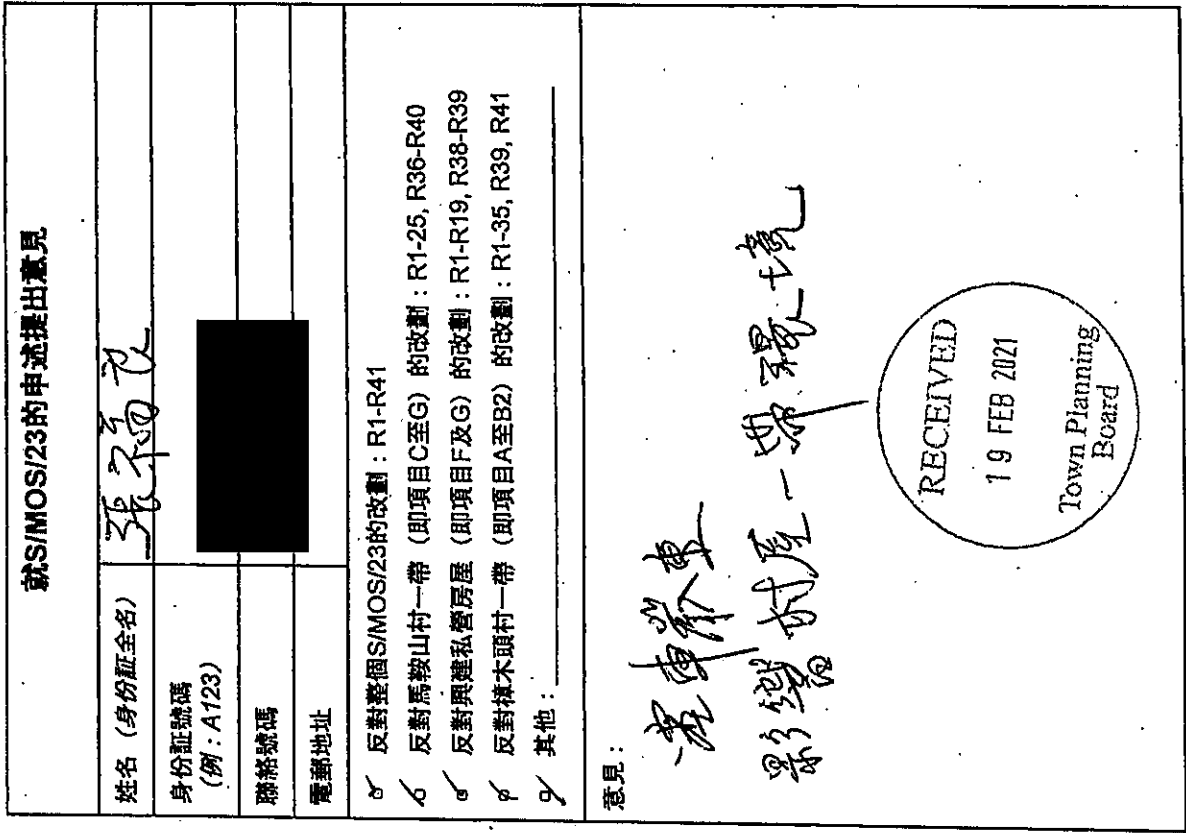 就S/MOS/23的申述提出意見
姓名（身份証全名）
張
身份証號碼
(例：A123)
聯絡號碼
電郵地址
反對整個S/MOS/23的改劃：R1-R41
反對馬鞍山村一帶（即項目C至G）的改劃：R1-25, R36-R40
反對興建私營房屋（即項目F及G）的改劃：R1-R19, R38-R39
反對樟木頭村一帶（即項目A至B2）的改劃：R1-35, R39, R41
其他：
意見：
影響村屋一帶環境
RECEIVED
19 FEB 2021
Town Planning
Board